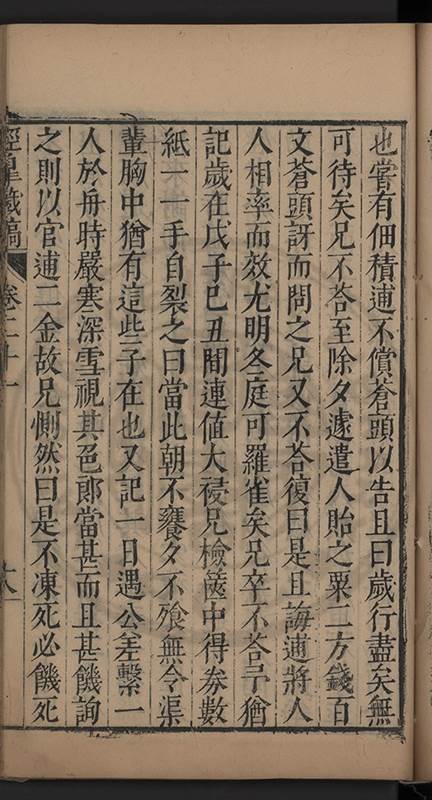 也嘗有佃積逋不償蒼頭以告且曰歲行盡矣無
可待矣兄不荅至除夕遽遣人貽之粟二方錢百
文蒼頭訝而問之兄又不荅復曰是且誨逋將人
人相率而效尤明冬庭可羅雀矣兄卒不荅予猶
記歲在戊子己丑間連值大祲兄檢篋中得券數
紙一一手自裂之曰當此朝不饔夕不飱無令渠
輩胸中猶有這些子在也又記一日遇公差繫一
人於舟時嚴寒深雪視其色郎當甚而且甚饑詢
之則以官逋二金故兄惻然曰是不凍死必饑死
涇皐藏稿 卷二十一 十八